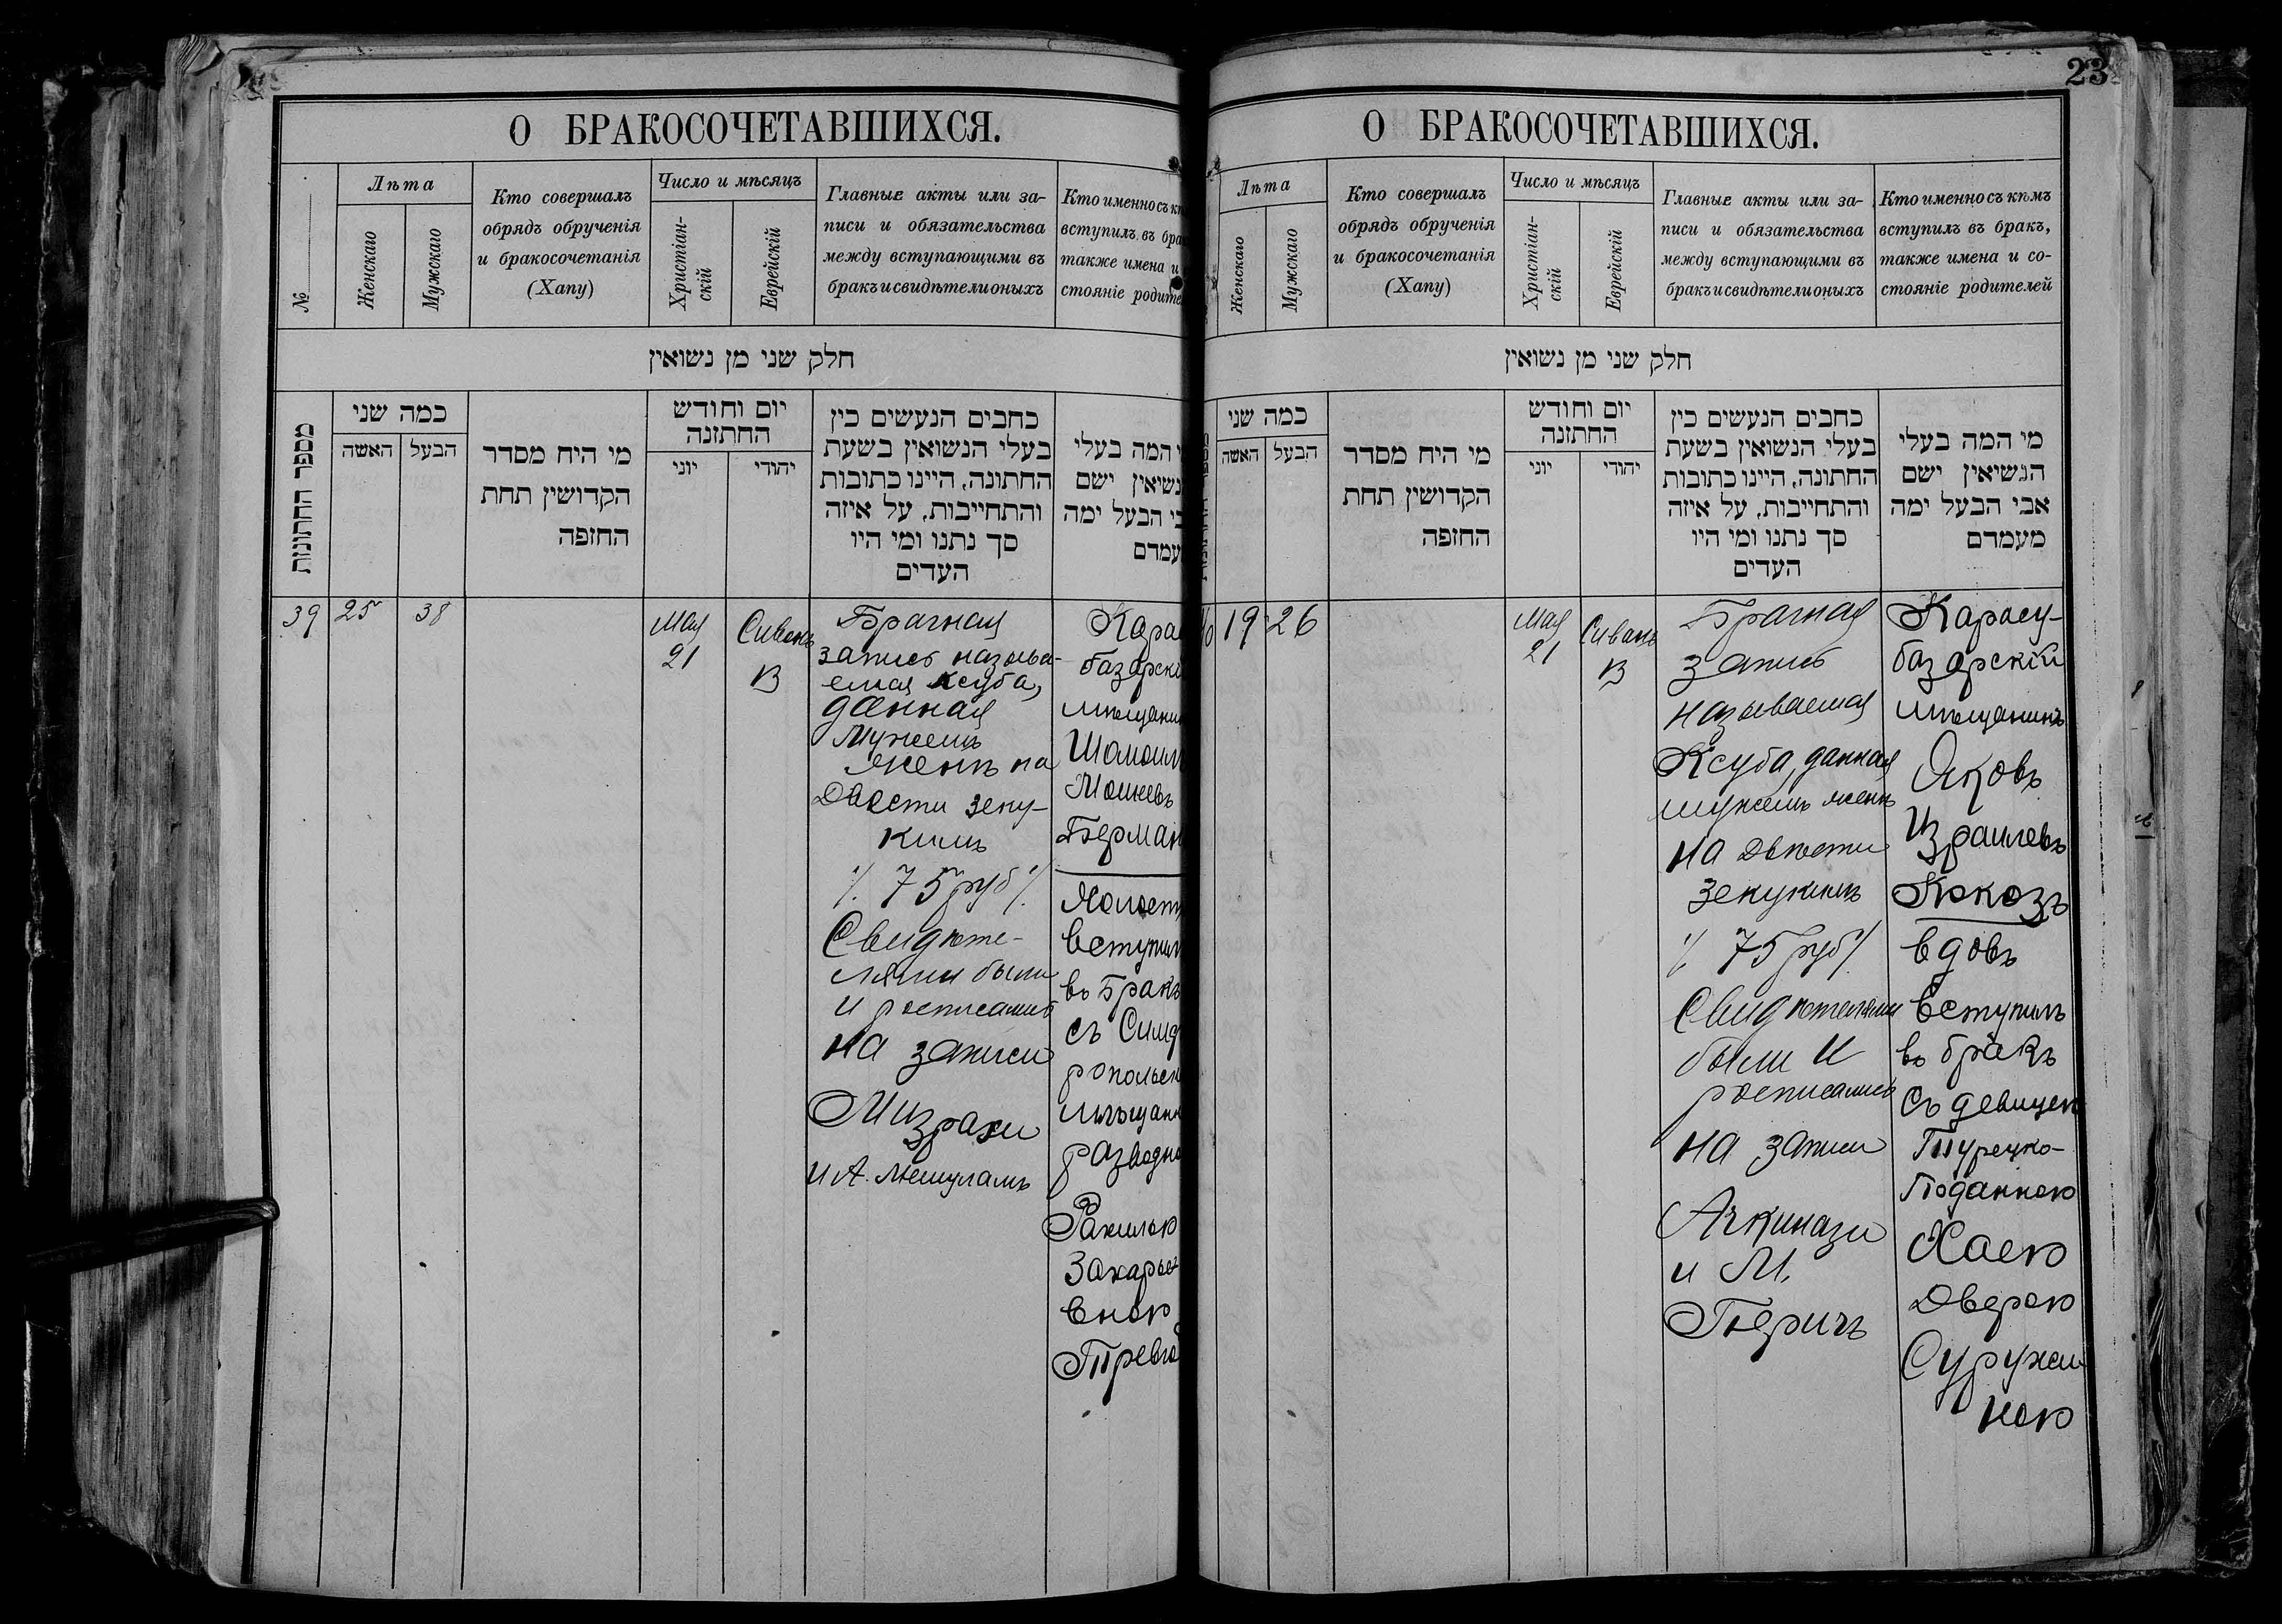 О БРАКОСОЧЕТАВШИХСЯ.
№
Лѣта
Женскаго
Мужскаго
Кто совершалъ
обрядъ обрученія
и бракосочетанія
(Хапу)
Число и мѣсяцъ
Христіан-
скій
Еврейскій
Главные акты или за-
писи и обязательства
между вступающими въ
бракъ и свидѣтели оныхъ
Кто именно съ к
вступилъ въ бра
также имена и
стояніе родите
חלק שני מן נשואין
מספר החתונות
כמה שני
האשה
הבעל
מי היח מסדר
הקדושין תחת
החזפה
יום וחודש
החתזנה
יוני
יהודי
כחבים הנעשים כין
בעלי הנשואין בשעת
החתונה, היינו כתובות
והתחייבות, על איזה
סך נתנו ומי היו
העדים
המה בעלי
נשיאין ישם
בי הבעל ימה
עמדם
39
25
38
Мая
21
Сиванъ
В
Брачная
запись называ-
емая Ксуба,
данная
мужемъ
женѣ на
двести зеку-
кимъ
./. 75 руб ./.
Свидѣте-
лями были
и росписались
на записи
Мизрахи
и А. Мешуламъ
Кара
базарскі
мѣщани
Шамоил
Мошеевъ
Берман
Холост
вступил
въ Бракъ
съ Симф
рополск
мѣщанк
разводно
Рахилью
Захарье
вною
Тревго
23
О БРАКОСОЧЕТАВШИХСЯ.
Лѣта
Женскаго
Мужскаго
Кто совершалъ
обрядъ обрученія
и бракосочетанія
(Хапу)
Число и мѣсяцъ
Христіан-
скій
Еврейскій
Главные акты или за-
писи и обязательства
между вступающими въ
бракъ и свидѣтели оныхъ
Кто именно съ кѣмъ
вступилъ въ бракъ,
также имена и со-
стояніе родителей
חלק שני מן נשואין
כמה שני
האשה
הבעל
מי היח מסדר
הקדושין תחת
החזפה
יום וחודש
החתזנה
יוני
יהודי
כחבים הנעשים כין
בעלי הנשואין בשעת
החתונה, היינו כתובות
והתחייבות, על איזה
סך נתנו ומי היו
העדים
מי המה בעלי
הגשיאין ישם
אבי הבעל ימה
מעמדם
19
26
Мая
21
Сиванъ
В
Брачная
запись
называемая
Ксуба, данная
мужемъ женѣ
на двѣсти
зекукимъ
./. 75 руб ./.
Свидѣтелями
были и
росписались
на записи
Ачкинази
и М.
Беричъ
Карасу-
базарскій
мѣщанинъ
Яковъ
Израилевъ
Кокозъ
вдовъ
вступилъ
въ бракъ
съ девицею
Турецко-
Поданною
Хаею
Дверою
Суружи
ною